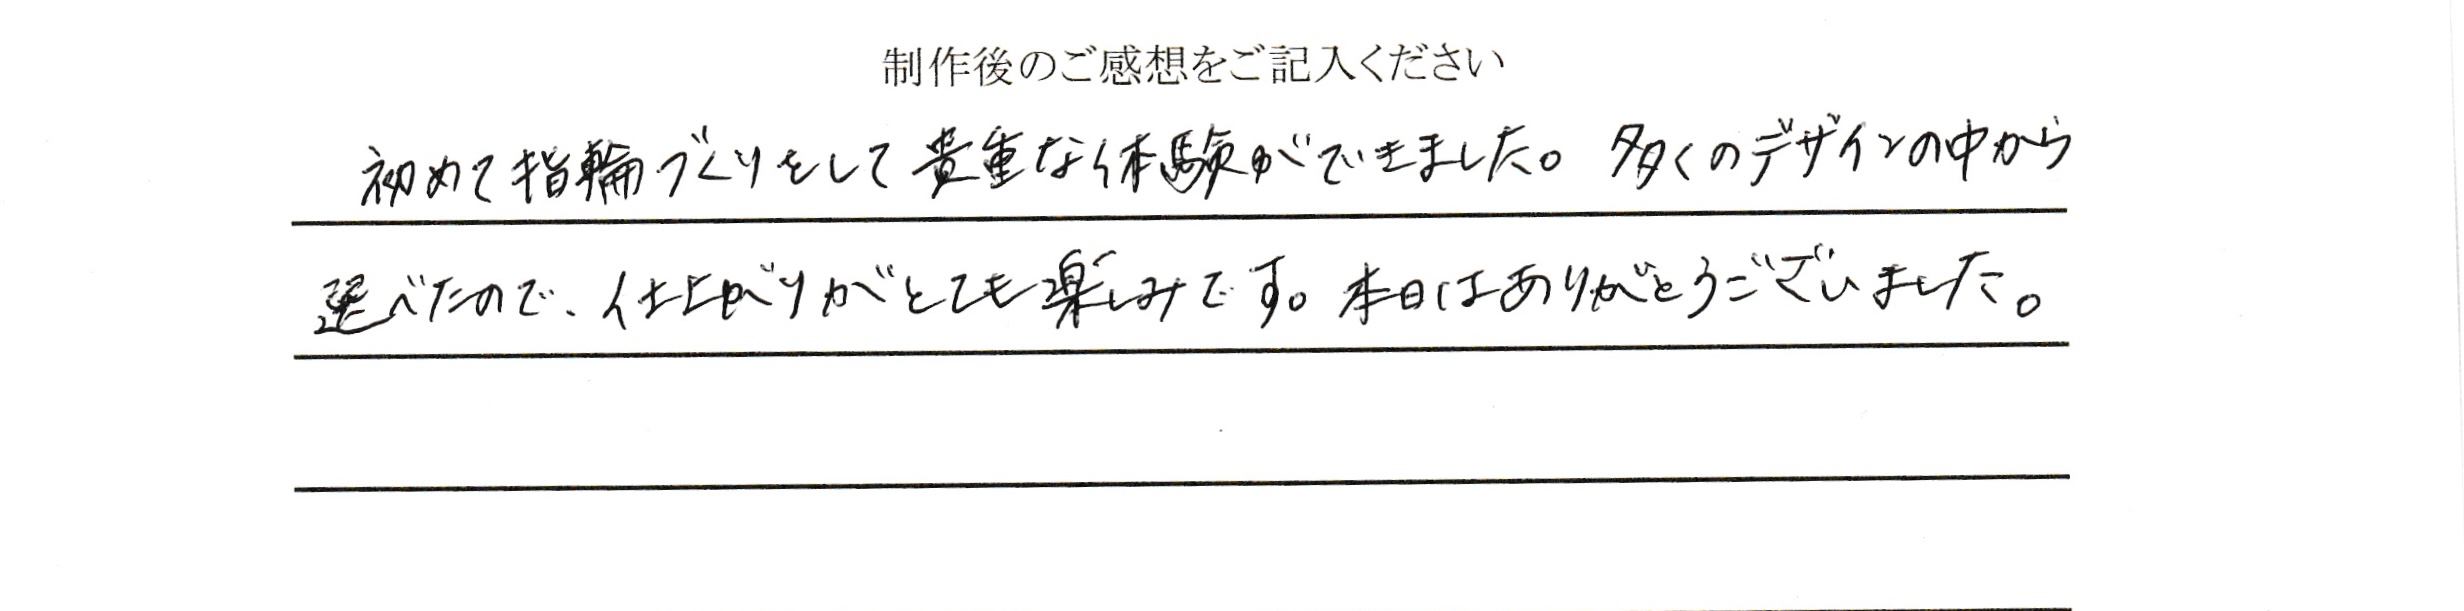 制作後のご感想をご記入ください
初めて指輪づくりをして貴重な体験ができました。多くのデザインの中から
選べたので、仕上がりがとても楽しみです。本日はありがとうございました。